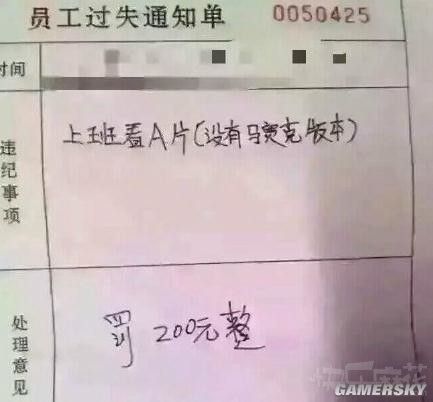 员工过失通知单 0050425
时间
违纪事项
上班看A片(没有马赛克版本)
处理意见
罚 200元整
GAMERSKY